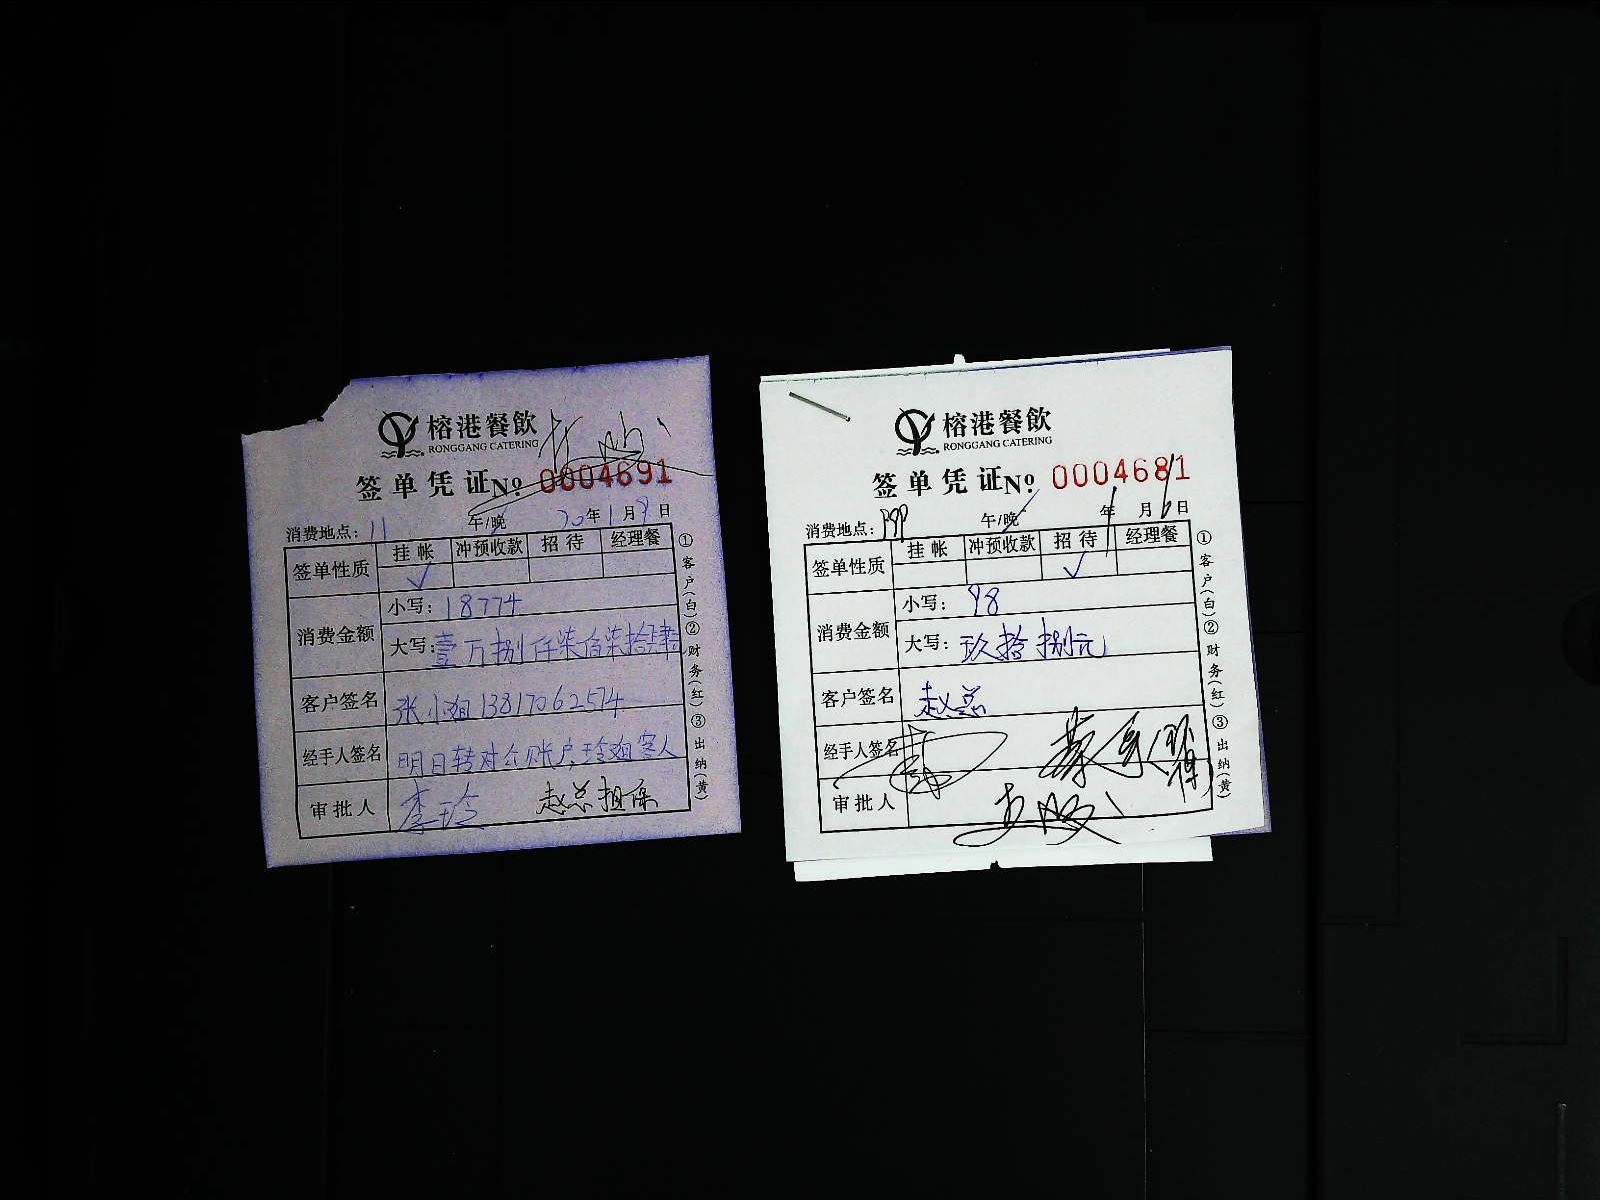 榕港餐飲
RONGGANG CATERING
签单凭证 № 0004691
消费地点: 11 午/晚 20年1月9日
签单性质 挂帐 冲预收款 招待 经理餐
✓
消费金额 小写: 18774
大写: 壹万捌仟柒佰柒拾肆
客户签名 张小姐 13817062574
经手人签名 明日转对公账户,玲姐客人
审批人 李玲 赵总担保
①客户(白)②财务(红)③出纳(黄)
榕港餐飲
RONGGANG CATERING
签单凭证 № 0004681
消费地点: 午/晚 年1月6日
签单性质 挂帐 冲预收款 招待 经理餐
✓
消费金额 小写: 98
大写: 玖拾捌元
客户签名 赵总
经手人签名
审批人
①客户(白)②财务(红)③出纳(黄)